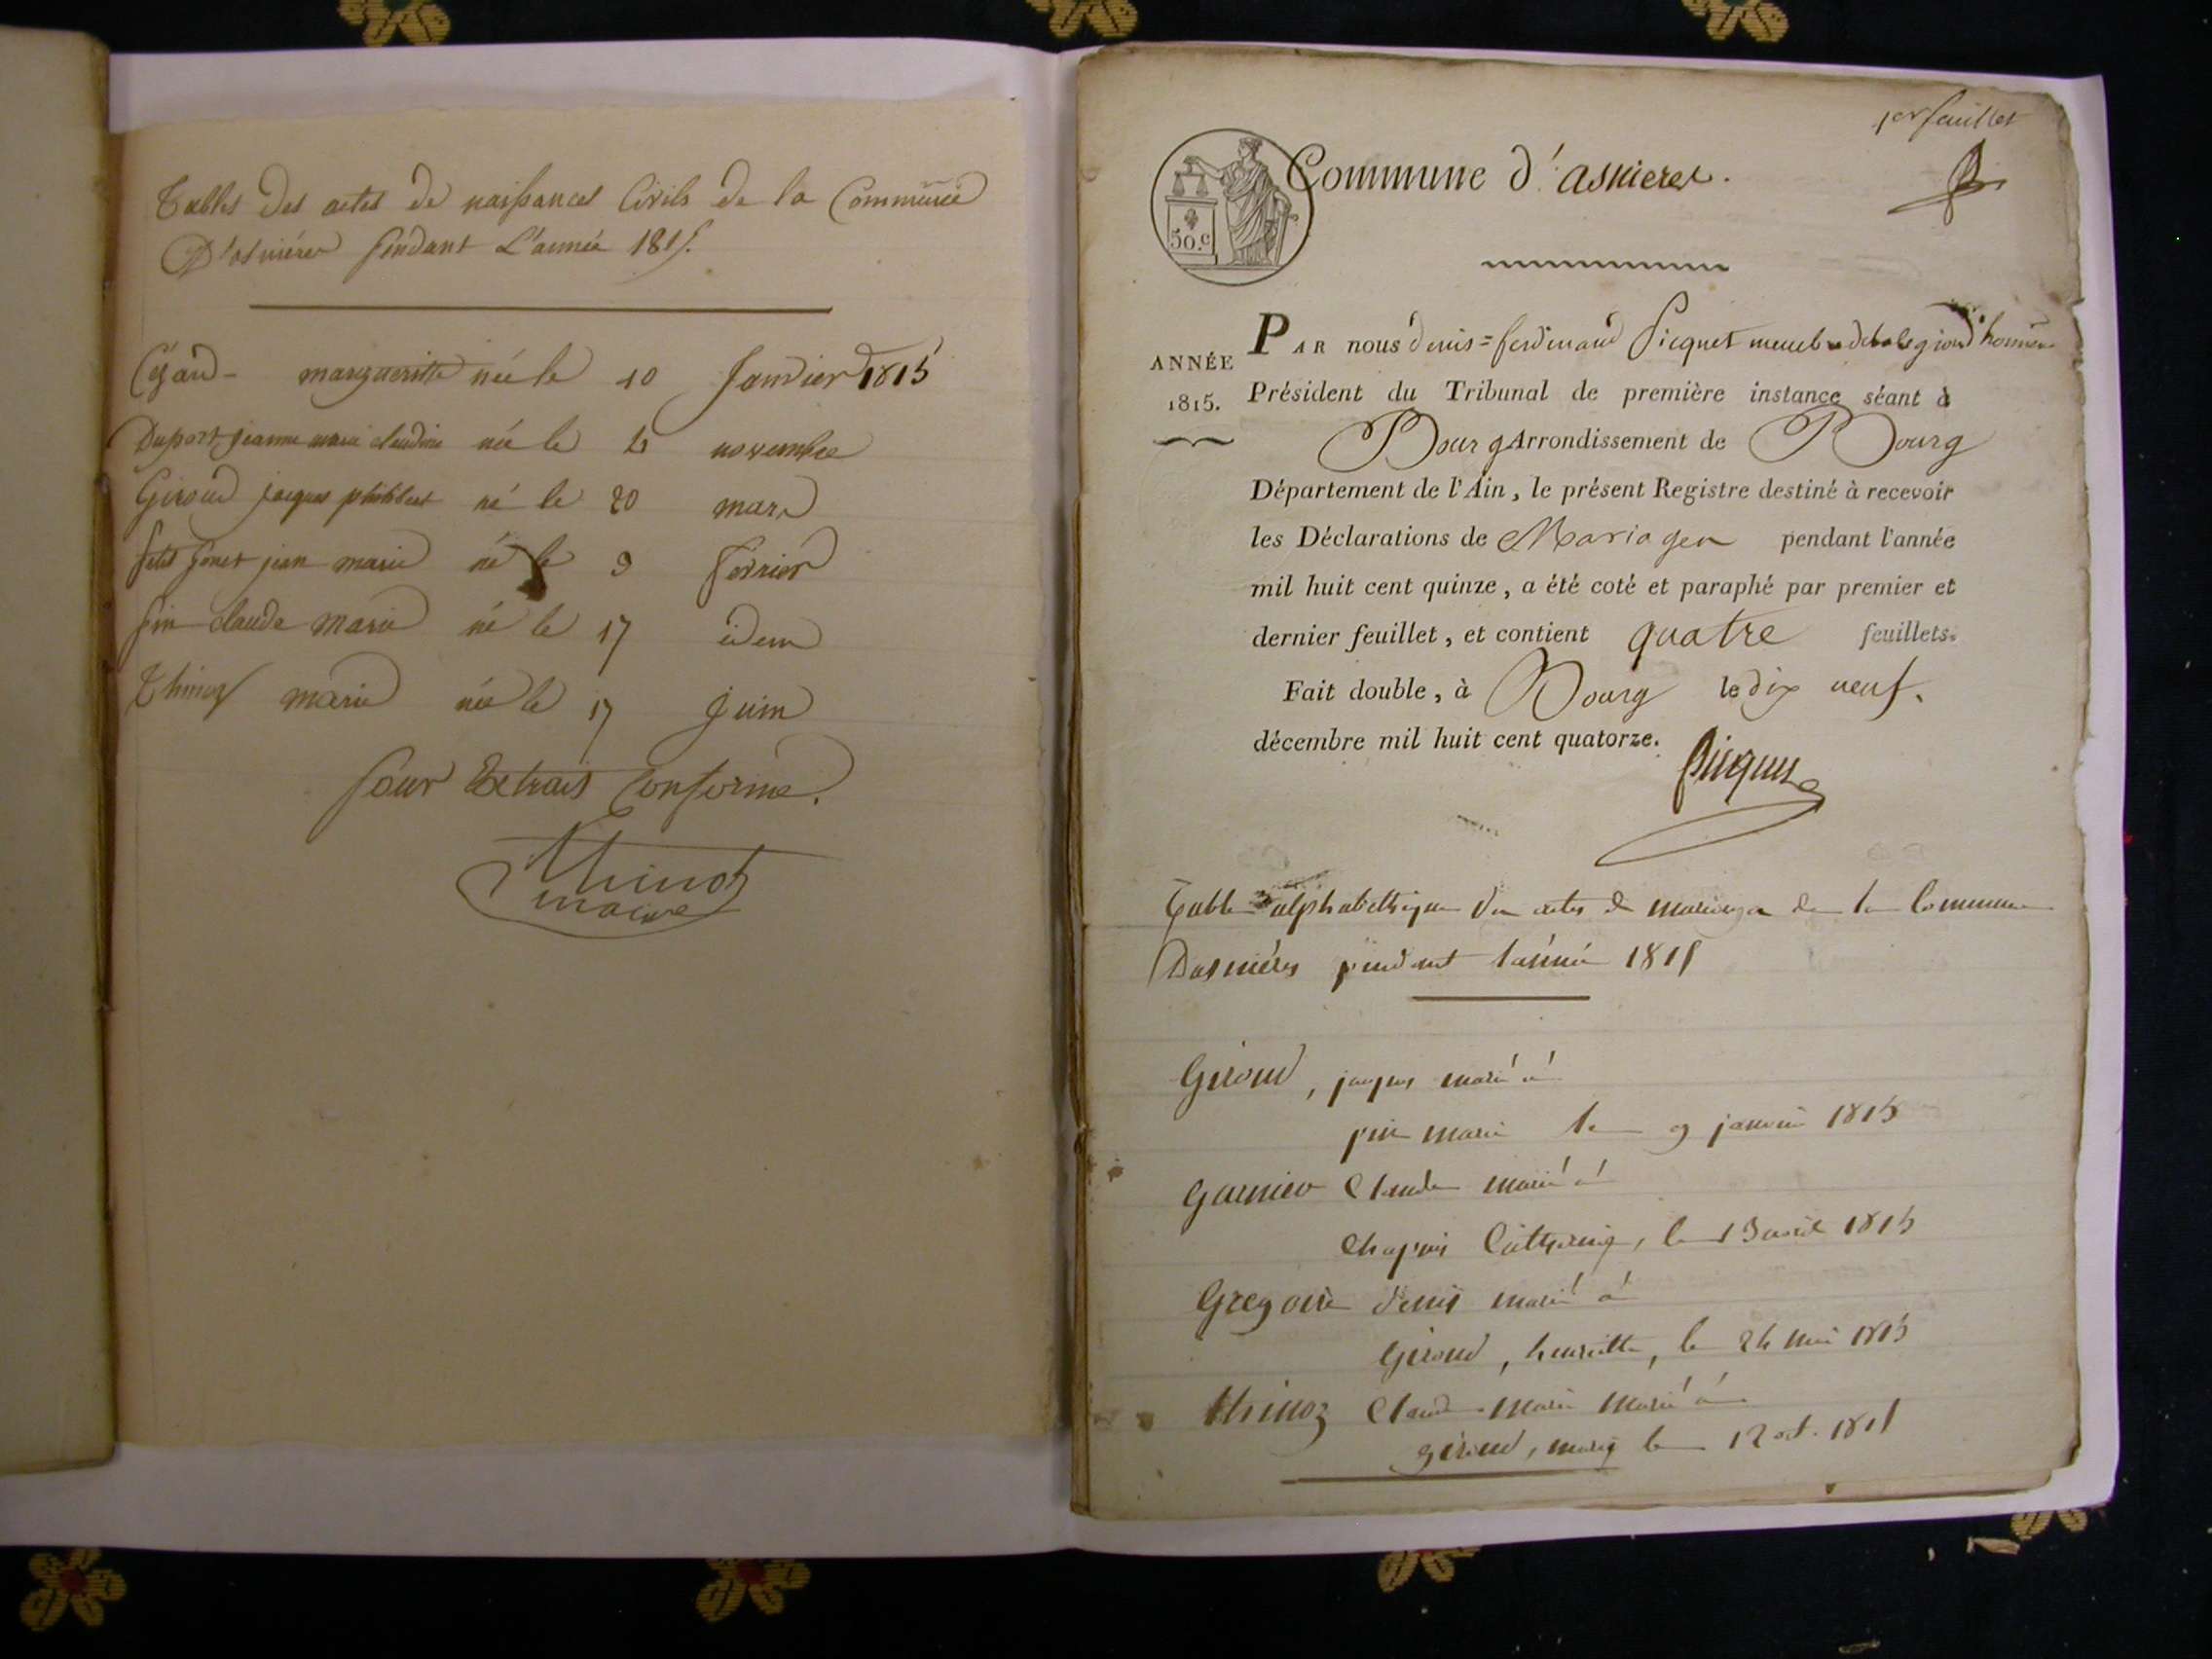 Tables des actes de naissances Civils de la Commune
D'asniéres pendant L'année 1815.
margueritte née le 10 Janvier 1815
Duport jeanne marie claudine née le 4 novembre
Giroud jacques philibert né le 20 mars
petit jean marie né le 9 Février
pin claude marie né le 17 idem
Thinoz marie née le 17 Juin
pour Extrait Conforme.
Thinoz
maire
1er feuillet
Commune d'asnieres.
50.c
ANNÉE
1815.
PAR nous denis=ferdinand Picquet membre de la legion d'honneur
Président du Tribunal de première instance séant à
Bourg Arrondissement de Bourg
Département de l'Ain, le présent Registre destiné à recevoir
les Déclarations de Mariages pendant l'année
mil huit cent quinze, a été coté et paraphé par premier et
dernier feuillet, et contient quatre feuillets.
Fait double, à Bourg le dix neuf.
décembre mil huit cent quatorze.
Picquet
Table alphabethique des actes de mariages de la Commune
Dasniéres pendant l'année 1815
Giroud, jacques marié à
pin marie le 9 janvier 1815
Garnier Claude marié à
Chapuis Catherine, le 13 avril 1815
Gregoire denis marié à
Giroud, henriette, le 24 mai 1815
thinoz Claude marie marié à
giroud, marie le 12 oct. 1815